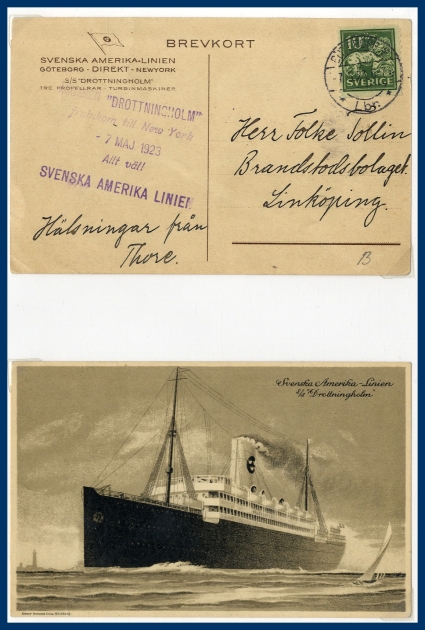 BREVKORT
SVENSKA AMERIKA-LINIEN
GÖTEBORG - DIREKT - NEWYORK
S/S "DROTTNINGHOLM"
TRE PROPELLRAR - TURBINMASKINER
"DROTTNINGHOLM"
till New York
- 7 MAJ 1923
Allt väl!
SVENSKA AMERIKA LINIEN
10
SVERIGE
Lbr.
Herr Folke Tollin
Brandstodsbolaget.
Linköping.
Hälsningar från
Thore.
B
Svenska Amerika-Linien
S/S "Drottningholm"